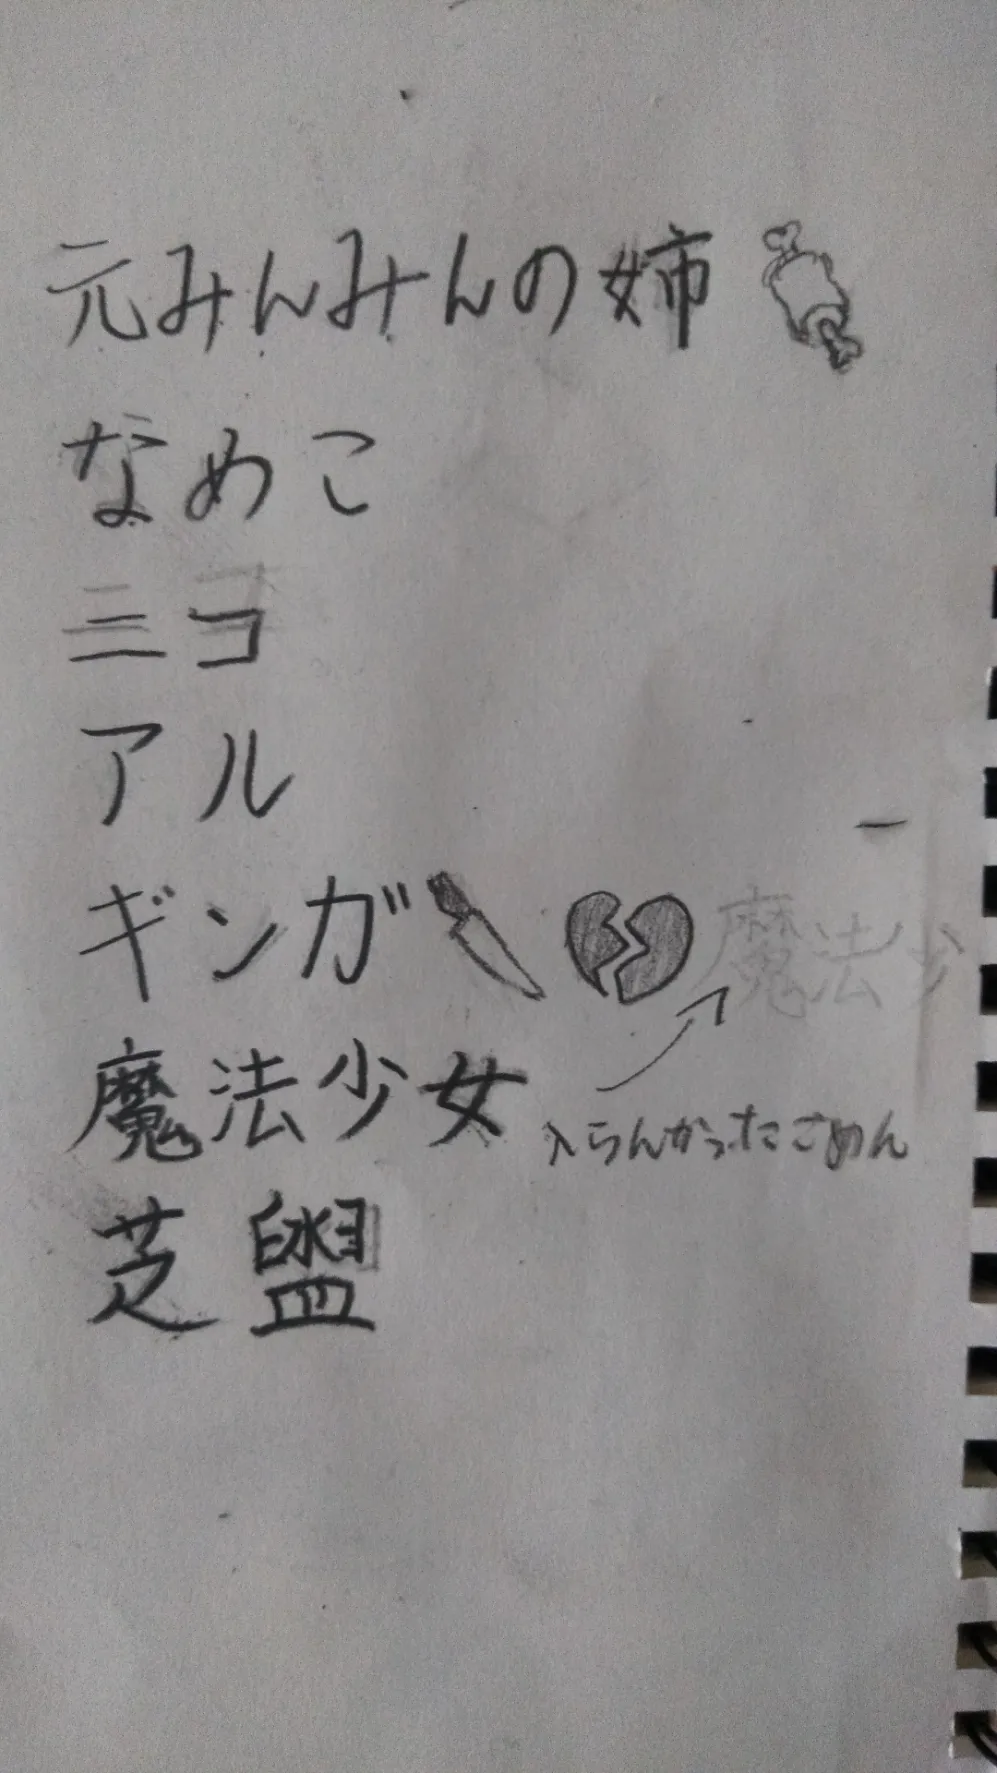 元みんみんの姉
なめこ
ミコ
アル
ギンガ 魔法少
魔法少女 入らんかったごめん
芝盥